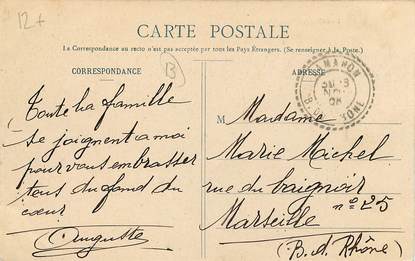 12+
CARTE POSTALE
La Correspondance au recto n'est pas acceptée par tous les Pays Étrangers. (Se renseigner à la Poste.)
CORRESPONDANCE
B
ADRESSE
Toute la famille
se joignent a moi
pour vous embrasser
tous du fond du
cœur
Auguste
M Madame
Marie Michel
rue du baignoir
n° 25
Marseille
(B. d. Rhône)